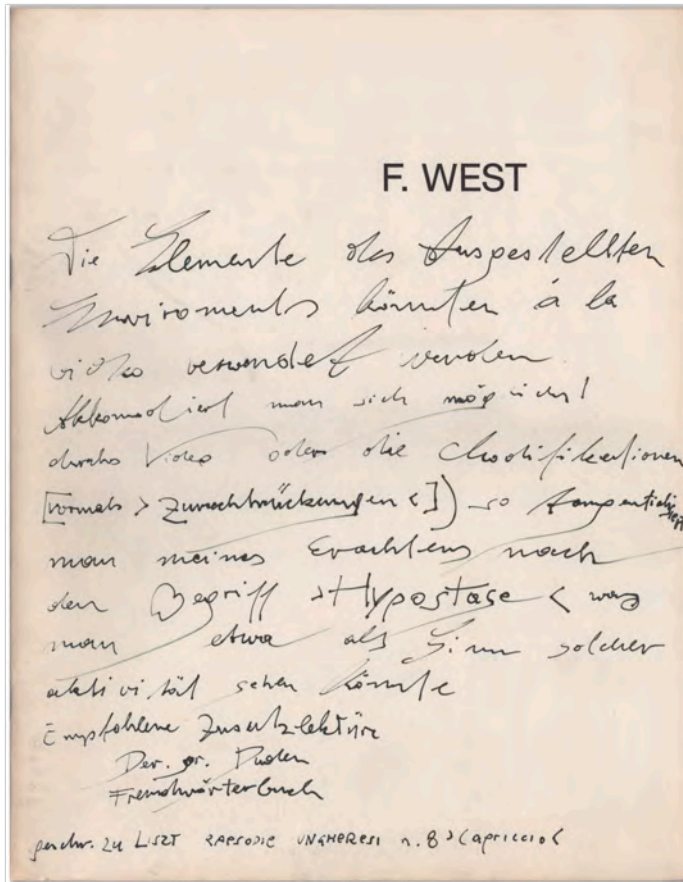 F. WEST
Die Elemente des Ausgestellten
Enviroments könnten á la
video verwendet werden
Akkomodiert man sich möglichst
durchs Video oder die
[vormals > Zurechtrückungen < ]) so
man meines Erachtens nach
den Begriff > Hypostase < was
man etwa als Sinn solcher
aktivität sehen könnte
Empfohlene Zusatzlektüre
Der. gr. Duden
Fremdwörterbuch
geschr. zu LISZT RAPSODIE UNGHERESI n. 8 > Capriccio <